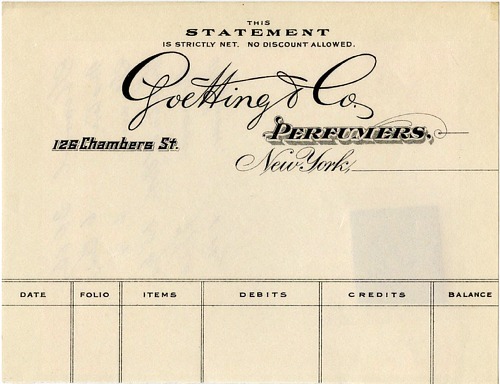 THIS
STATEMENT
IS STRICTLY NET. NO DISCOUNT ALLOWED.
Goetting & Co.
PERFUMERS.
126 Chambers St.
New York,
DATE FOLIO ITEMS DEBITS CREDITS BALANCE